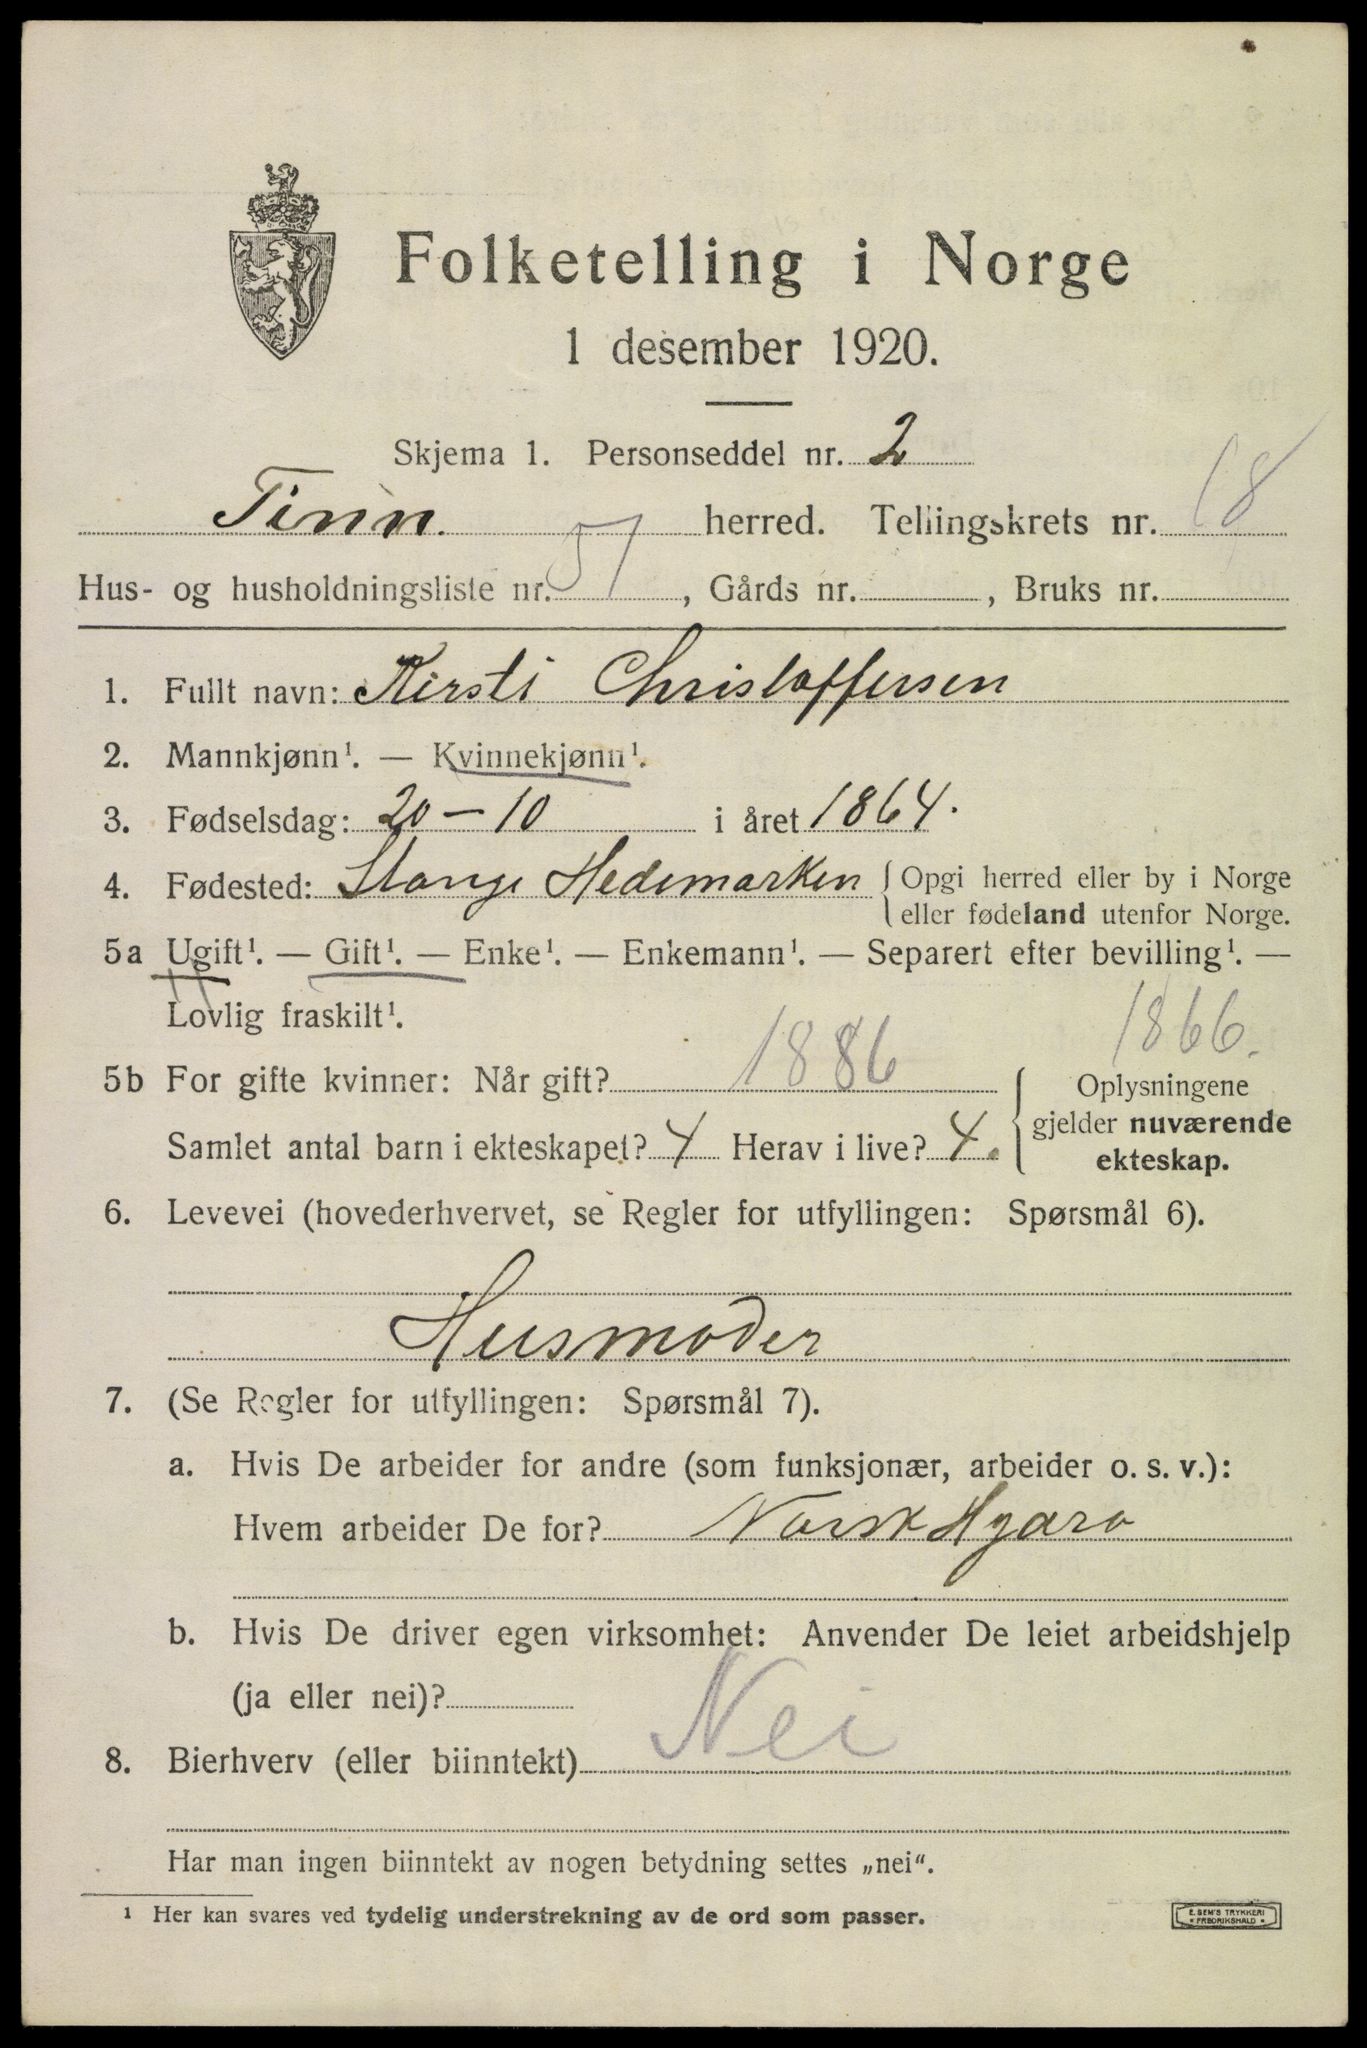 Folketelling i Norge
1 desember 1920.
Skjema 1. Personseddel nr. 2
Tinn. herred. Tellingskrets nr. 18
Hus- og husholdningsliste nr. 57, Gårds nr. , Bruks nr.
1. Fullt navn: Kirsti Christoffersen
2. Mannkjønn¹. — Kvinnekjønn¹.
3. Fødselsdag: 20-10 i året 1864.
4. Fødested: Stange Hedemarken { Opgi herred eller by i Norge
eller fødeland utenfor Norge.
5a Ugift¹. — Gift¹. — Enke¹. — Enkemann¹. — Separert efter bevilling¹. —
Lovlig fraskilt¹. 1866.
5b For gifte kvinner: Når gift? 1886 { Oplysningene
gjelder nuværende
Samlet antal barn i ekteskapet? 4 Herav i live? 4.
ekteskap.
6. Levevei (hovederhvervet, se Regler for utfyllingen: Spørsmål 6).
Husmoder
7. (Se Regler for utfyllingen: Spørsmål 7).
a. Hvis De arbeider for andre (som funksjonær, arbeider o. s. v.):
Hvem arbeider De for? Norsk Hydro
b. Hvis De driver egen virksomhet: Anvender De leiet arbeidshjelp
(ja eller nei)?
8. Bierhverv (eller biinntekt) Nei
Har man ingen biinntekt av nogen betydning settes „nei“.
¹ Her kan svares ved tydelig understrekning av de ord som passer.
E. SEM'S TRYKKERI
• FREDRIKSHALD •